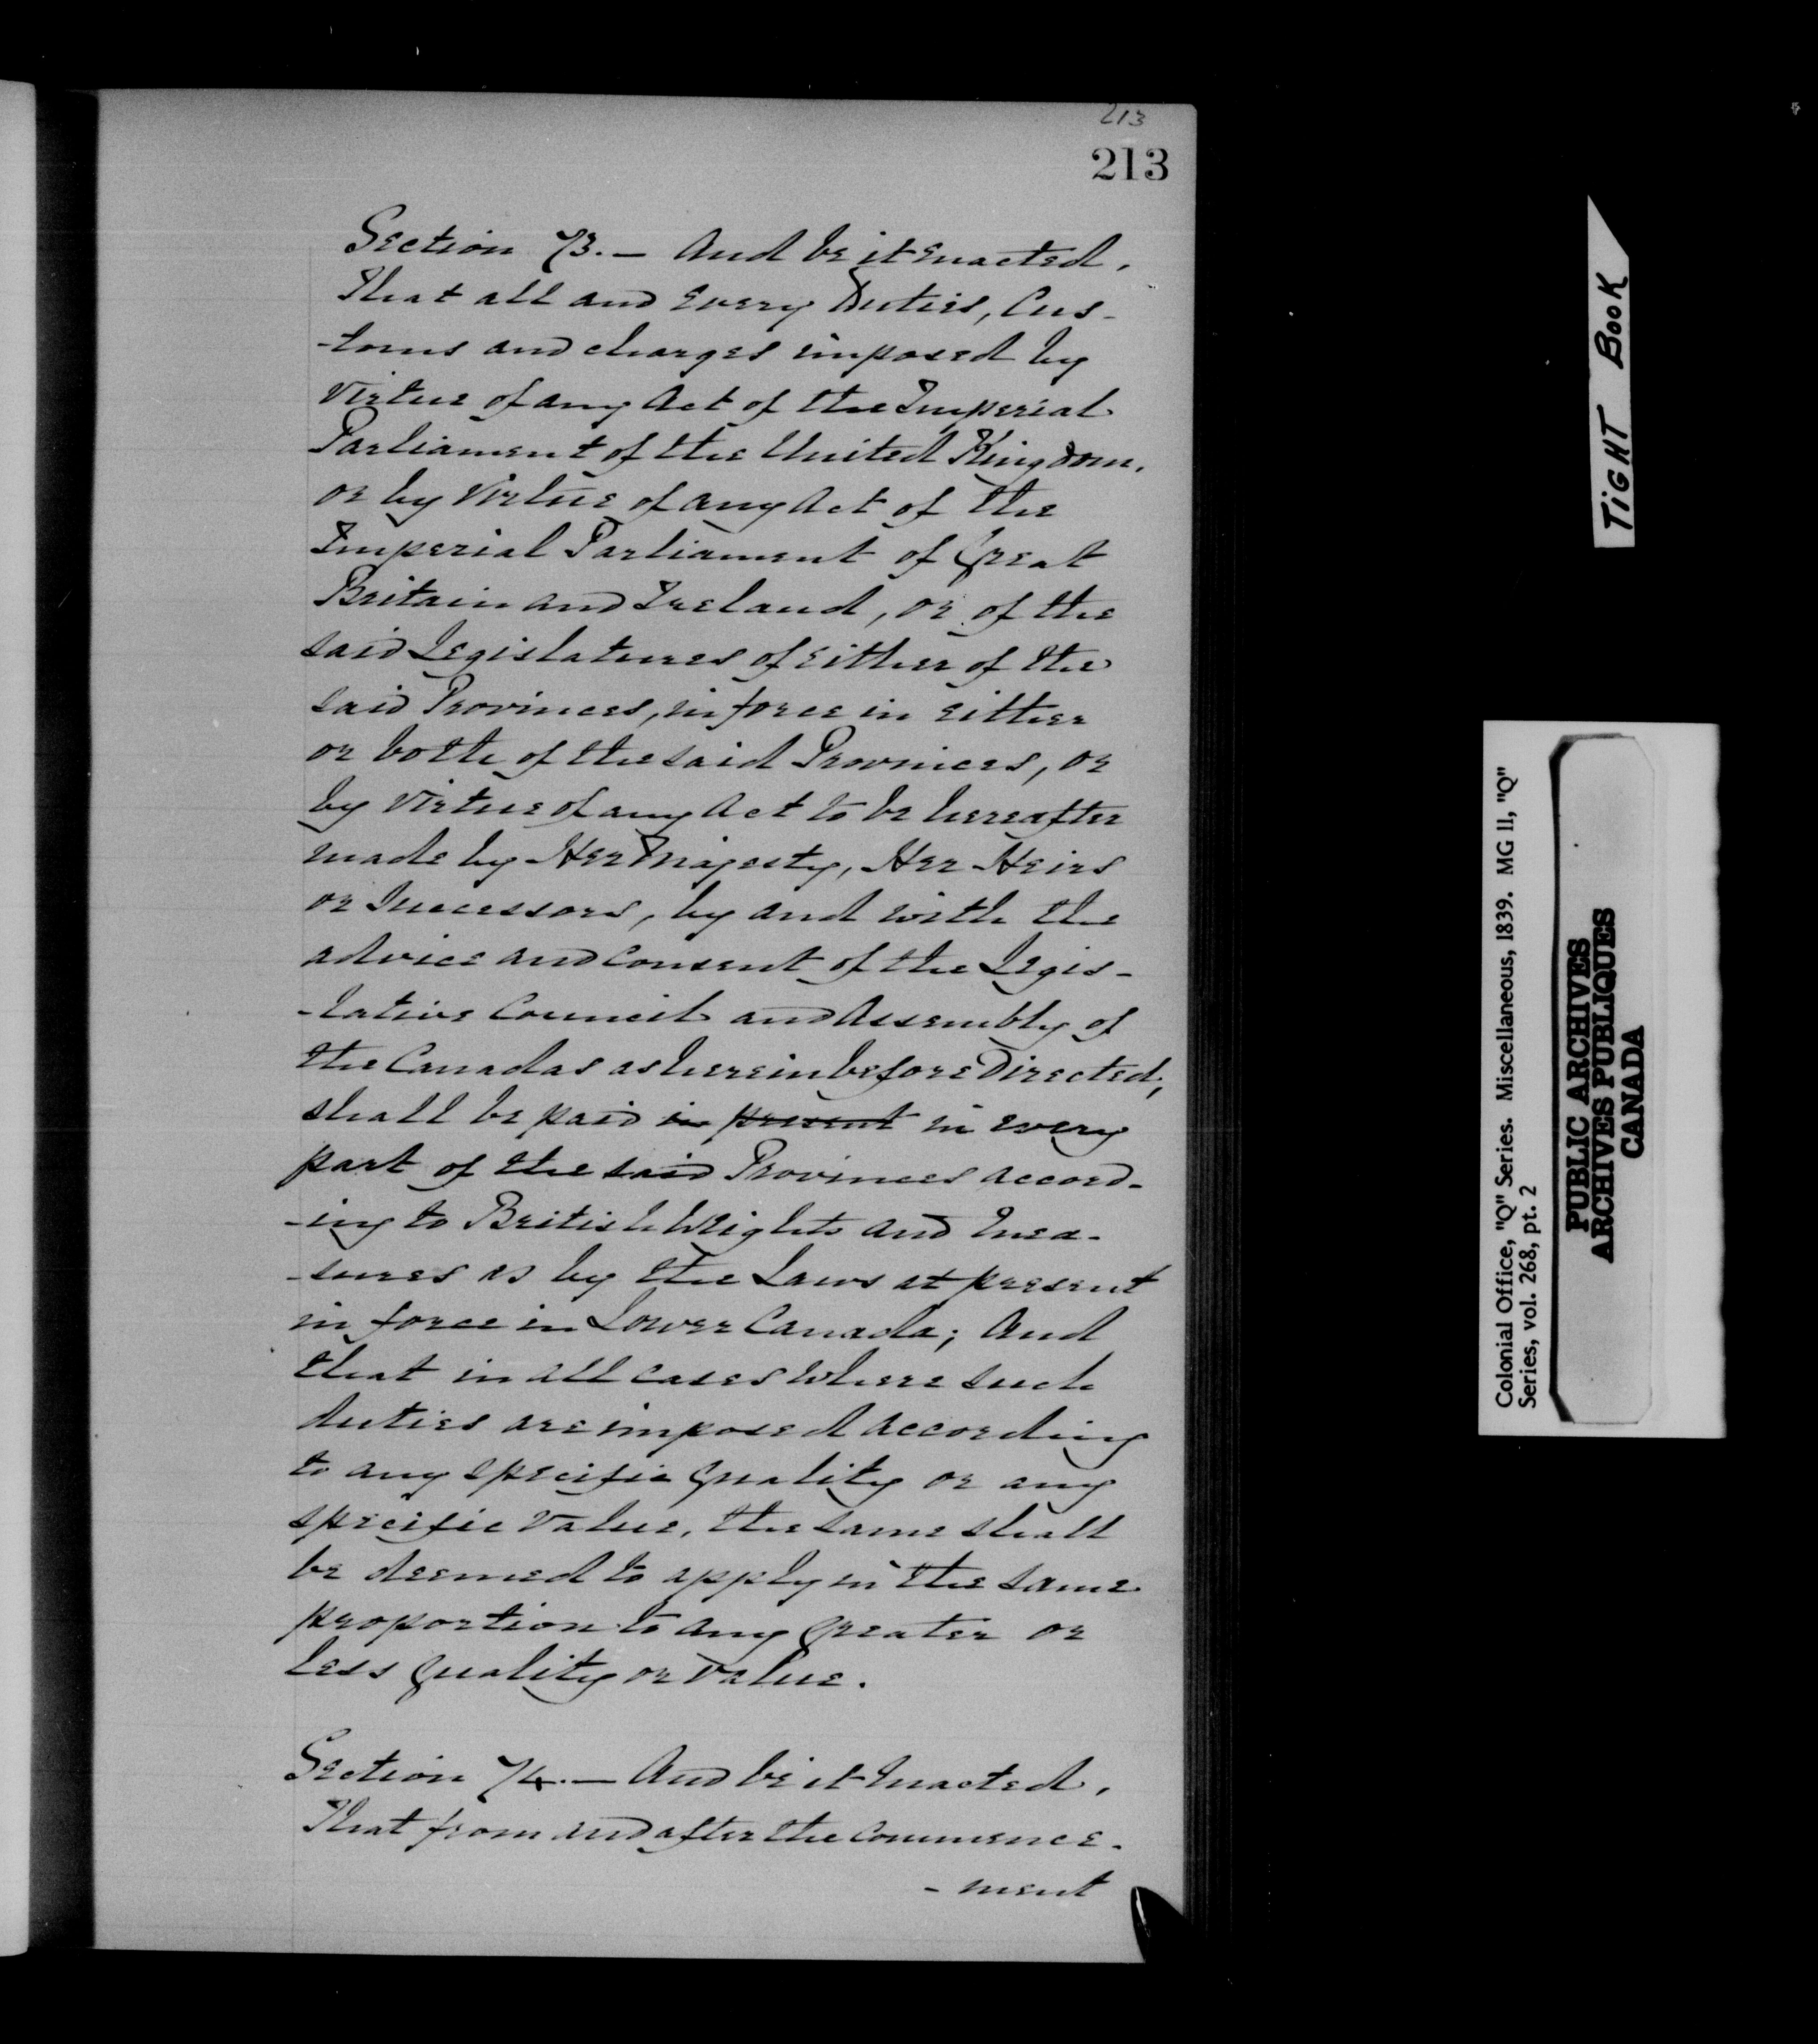 213
213
Section 73. — And be it Enacted,
That all and Every Duties, Cus-
-toms and charges imposed by
Virtue of any Act of the Imperial
Parliament of the United Kingdom,
or by Virtue of any Act of the
Imperial Parliament of Great
Britain and Ireland, or of the
said Legislatures of Either of the
said Provinces, in force in Either
or both of the said Provinces, or
by Virtue of any Act to be hereafter
made by Her Majesty, Her Heirs
or Successors, by and with the
advice and Consent of the Legis-
-lative Council and Assembly of
the Canadas as hereinbefore Directed;
shall be paid in present in every
part of the said Provinces accord-
-ing to British Weights and Mea-
-sures as by the Laws at present
in force in Lower Canada; And
that in all cases where such
duties are imposed according
to any specific Quality or any
specific Value, the same shall
be deemed to apply in the same
proportion to any Greater or
less Quality or Value.
Section 74. — And be it Enacted,
That from and after the Commence-
- ment
TIGHT BOOK
Colonial Office, "Q" Series. Miscellaneous, 1839. MG 11, "Q"
Series, vol. 268, pt. 2
PUBLIC ARCHIVES
ARCHIVES PUBLIQUES
CANADA